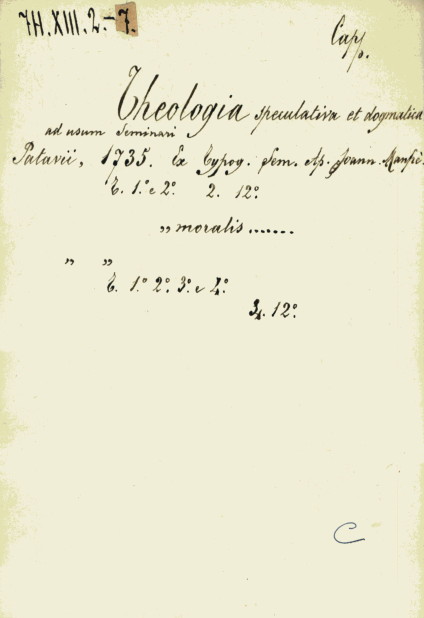 7H.XIII.2.-7.
Capp.
Theologia speculativa et dogmatica
ad usum Seminari
Patavii, 1735. Ex Typog. Sem. Ap. Joann. Manfrè.
T. 1.° e 2.° 2. 12.°
„ moralis .......
„ „
T. 1.° 2.° 3.° e 4.°
12.°
C